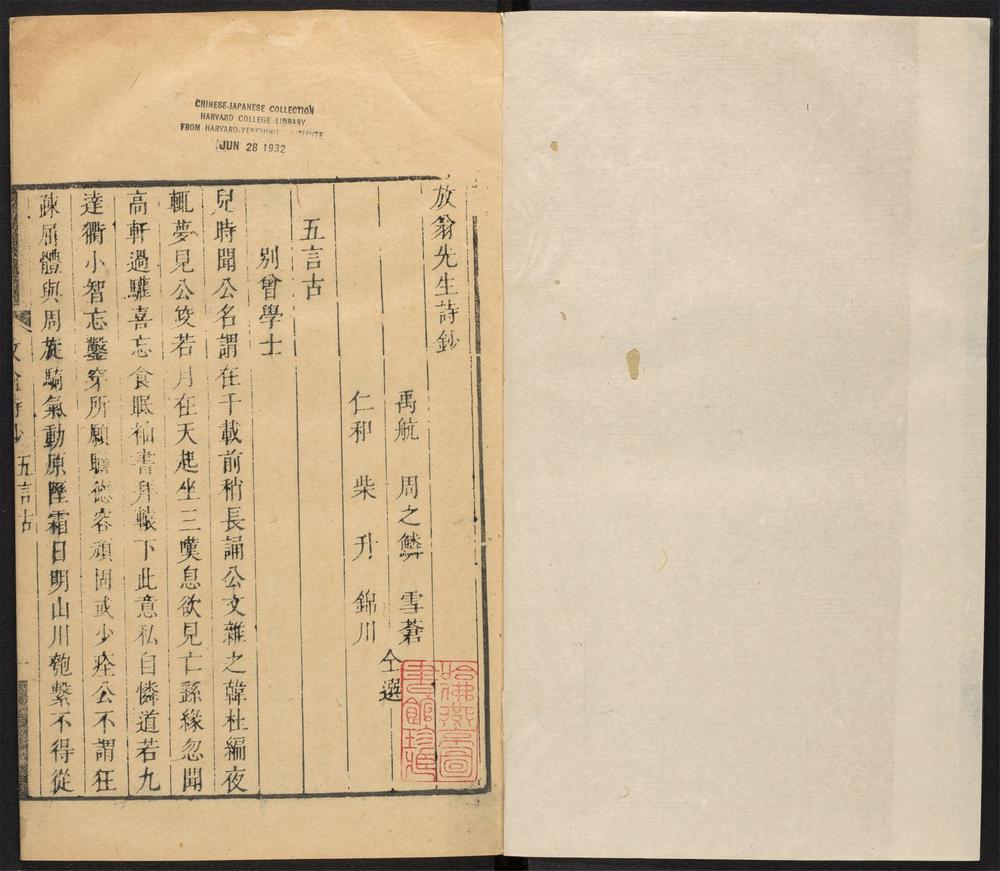 CHINESE-JAPANESE COLLECTION
HARVARD COLLEGE LIBRARY
FROM HARVARD-YENCHING
JUN 28 1932
放翁先生詩鈔
禹航 周之鱗 雪蒼
仁和 柴升 錦川
仝選
哈佛燕京圖
書館珍藏
五言古
別曾學士
兒時聞公名謂在千載前稍長誦公文雜之韓杜編夜
輒夢見公皎若月在天起坐三嘆息欲見亡繇緣忽聞
高軒過驩喜忘食眠袖書拜轅下此意私自憐道若九
達衢小智忘鑿穿所願瞻德容頑固或少痊公不謂狂
疎屈體與周旋騎氣動原隰霜日明山川匏繫不得從
放翁詩鈔 五言古 一